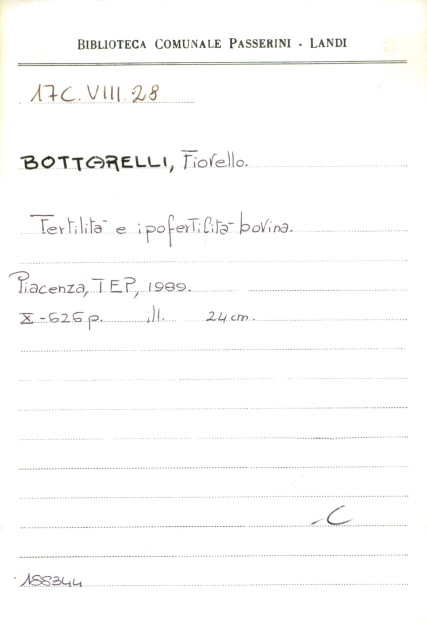 BIBLIOTECA COMUNALE PASSERINI - LANDI
17C.VIII.28
BOTTARELLI, Fiorello.
Fertilità e ipofertilità bovina.
Piacenza, TEP, 1989.
X-626 p. ill. 24 cm.
-C
188344